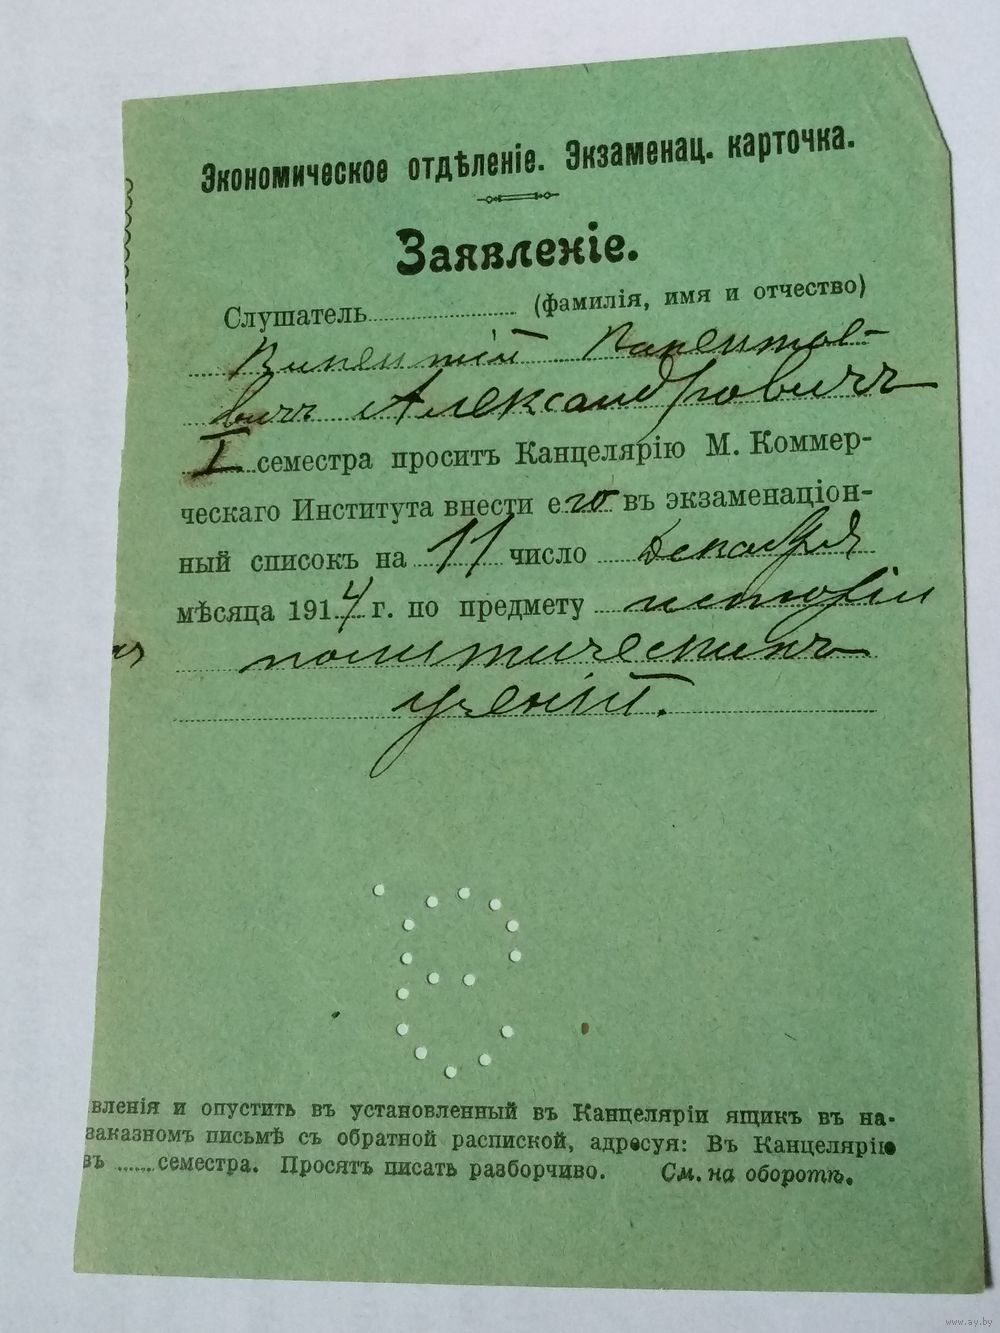 Экономическое отдѣленіе. Экзаменац. карточка.
Заявленіе.
Слушатель (фамилія, имя и отчество)
Викентій Викентье-
вичъ Александровичъ
I семестра проситъ Канцелярію М. Коммер-
ческаго Института внести его въ экзаменаціон-
ный списокъ на 11 число Декабря
мѣсяца 1914 г. по предмету исторіи
политическихъ
ученій.
вленія и опустить въ установленный въ Канцеляріи ящикъ въ на-
заказномъ письмѣ съ обратной распиской, адресуя: Въ Канцелярію
въ ........ семестра. Просятъ писать разборчиво. См. на оборотѣ.
www.ay.by